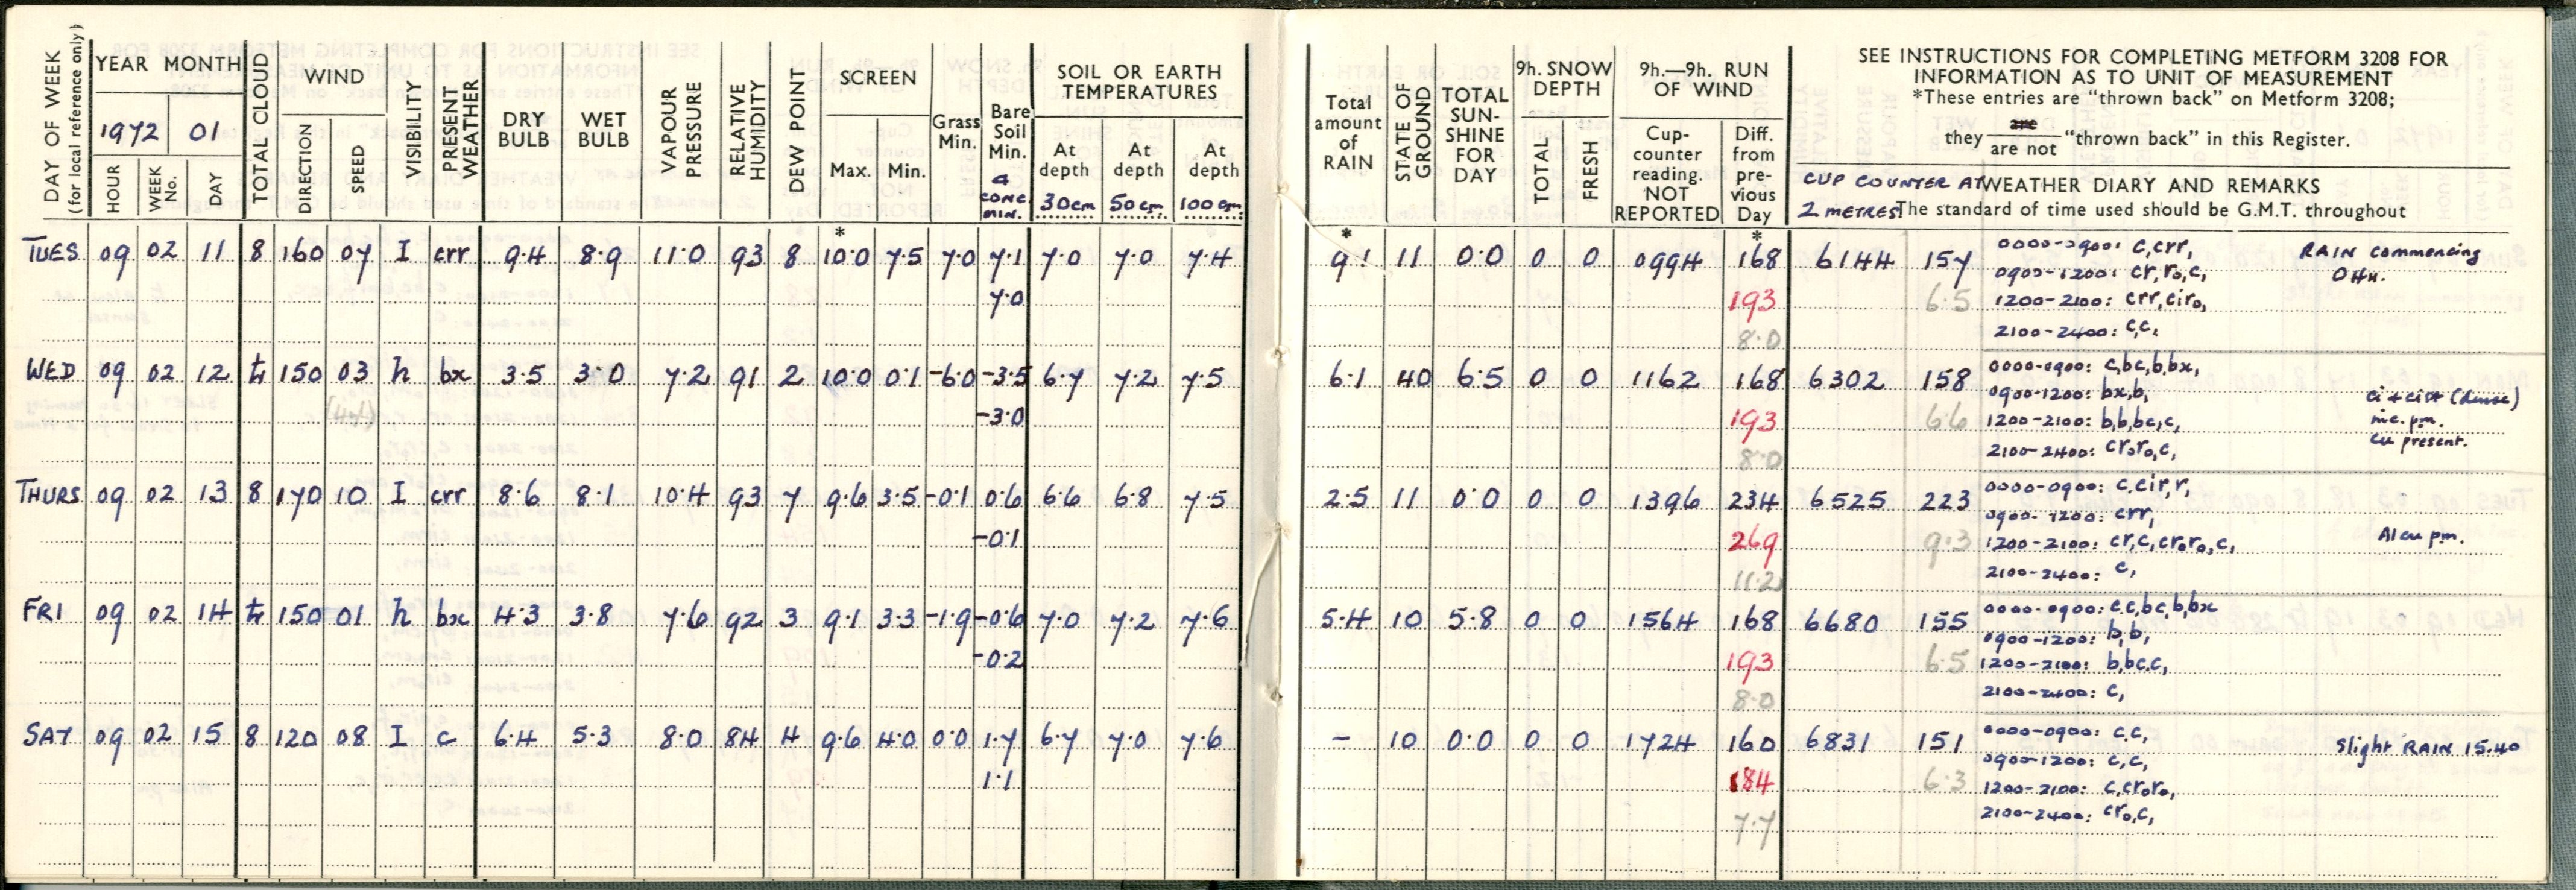 DAY OF WEEK
(for local reference only)
YEAR MONTH
1972 01
HOUR
WEEK No.
DAY
TOTAL CLOUD
WIND
DIRECTION
SPEED
VISIBILITY
PRESENT WEATHER
DRY BULB
WET BULB
VAPOUR PRESSURE
RELATIVE HUMIDITY
DEW POINT
SCREEN
Max. Min.
*
Grass Min.
Bare Soil Min.
& conc. min.
SOIL OR EARTH TEMPERATURES
At depth 30cm
At depth 50cm
At depth 100cm
Total amount of RAIN
*
STATE OF GROUND
TOTAL SUN-SHINE FOR DAY
9h. SNOW DEPTH
TOTAL
FRESH
9h.—9h. RUN OF WIND
Cup-counter reading. NOT REPORTED
Diff. from pre-vious Day
*
SEE INSTRUCTIONS FOR COMPLETING METFORM 3208 FOR
INFORMATION AS TO UNIT OF MEASUREMENT
*These entries are "thrown back" on Metform 3208;
they are / are not "thrown back" in this Register.
CUP COUNTER AT 2 METRES
WEATHER DIARY AND REMARKS
The standard of time used should be G.M.T. throughout
TUES 09 02 11 8 160 07 I crr 9.4 8.9 11.0 93 8 10.0 7.5 7.0 7.1 7.0 7.0 7.4 9.1 11 0.0 0 0 0994 168 6144 157 0000-0900: c,crr, RAIN commencing
0900-1200: cr,ro,c, 04H.
7.0 193 6.5 1200-2100: crr,ciro,
8.0 2100-2400: c,c,
WED 09 02 12 150 03 h bx 3.5 3.0 7.2 91 2 10.0 0.1 -6.0 -3.5 6.7 7.2 7.5 6.1 40 6.5 0 0 1162 168 6302 158 0000-0900: c,bc,b,bx,
0900-1200: bx,b, ci + cist (dense)
-3.0 193 6.6 1200-2100: b,b,bc,c, inc. p.m.
8.0 2100-2400: cr,ro,c, cu present.
THURS 09 02 13 8 170 10 I crr 8.6 8.1 10.4 93 7 9.6 3.5 -0.1 0.6 6.6 6.8 7.5 2.5 11 0.0 0 0 1396 234 6525 223 0000-0900: c,cir,r,
0900-1200: crr,
-0.1 269 9.3 1200-2100: cr,c,cro,ro,c, Alcu p.m.
11.2 2100-2400: c,
FRI 09 02 14 150 01 h bx 4.3 3.8 7.6 92 3 9.1 3.3 -1.9 -0.6 7.0 7.2 7.6 5.4 10 5.8 0 0 1564 168 6680 155 0000-0900: c,c,bc,b,bx
0900-1200: b,b,
-0.2 193 6.5 1200-2100: b,bc,c,
8.0 2100-2400: c,
SAT 09 02 15 8 120 08 I c 6.4 5.3 8.0 84 4 9.6 4.0 0.0 1.7 6.7 7.0 7.6 - 10 0.0 0 0 1724 160 6831 151 0000-0900: c,c, Slight RAIN 15.40
0900-1200: c,c,
1.1 184 6.3 1200-2100: c,cro,ro,
7.7 2100-2400: cro,c,